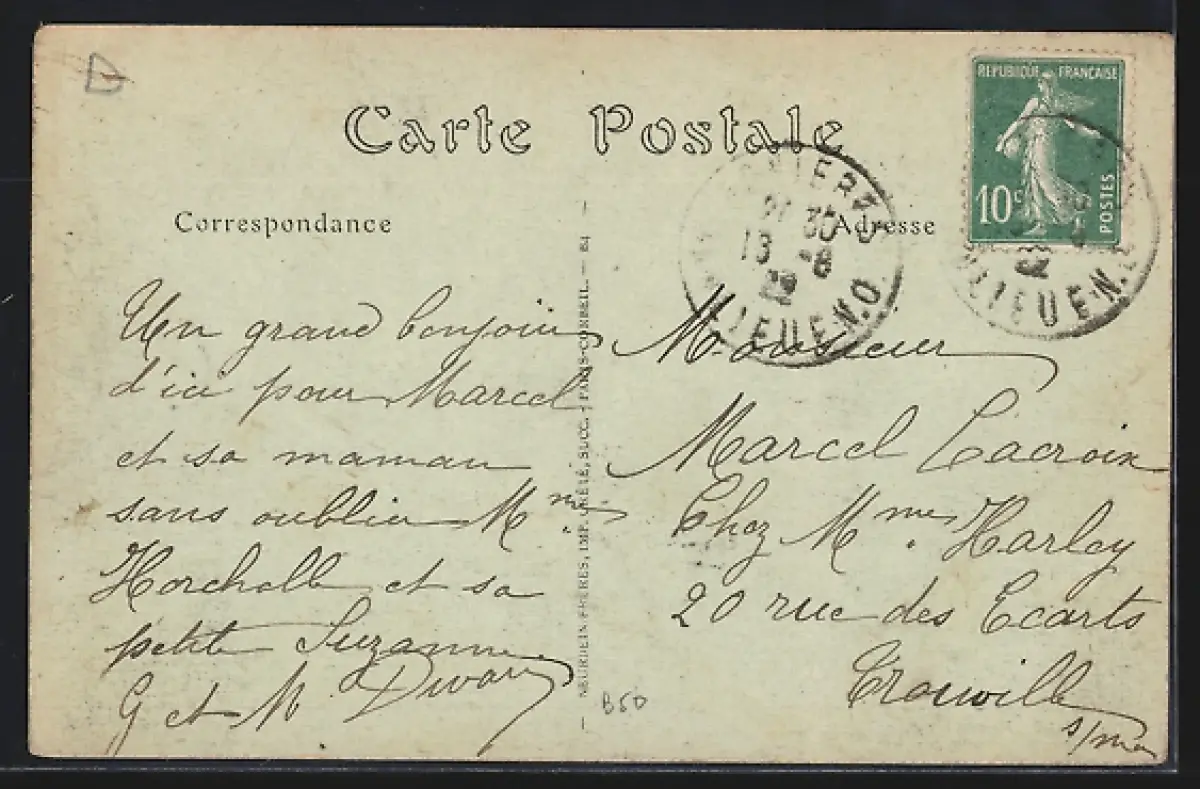 Carte Postale
Correspondance
Adresse
REPUBLIQUE FRANÇAISE
10c
POSTES
13 -8
22
LIEUE-N.O.
LIEUE-N.
Un grand bonjour
d'ici pour Marcel
et sa maman
sans oublier Mme
Horcholle et sa
petite Suzanne
G et M
NEURDEIN FRÈRES, IMP. CRÉTÉ, SUCC. - PARIS-CORBEIL. - 84
Monsieur
Marcel Lacroix
Chez Mme Harley
20 rue des Ecarts
Trouville
s/mer
B50